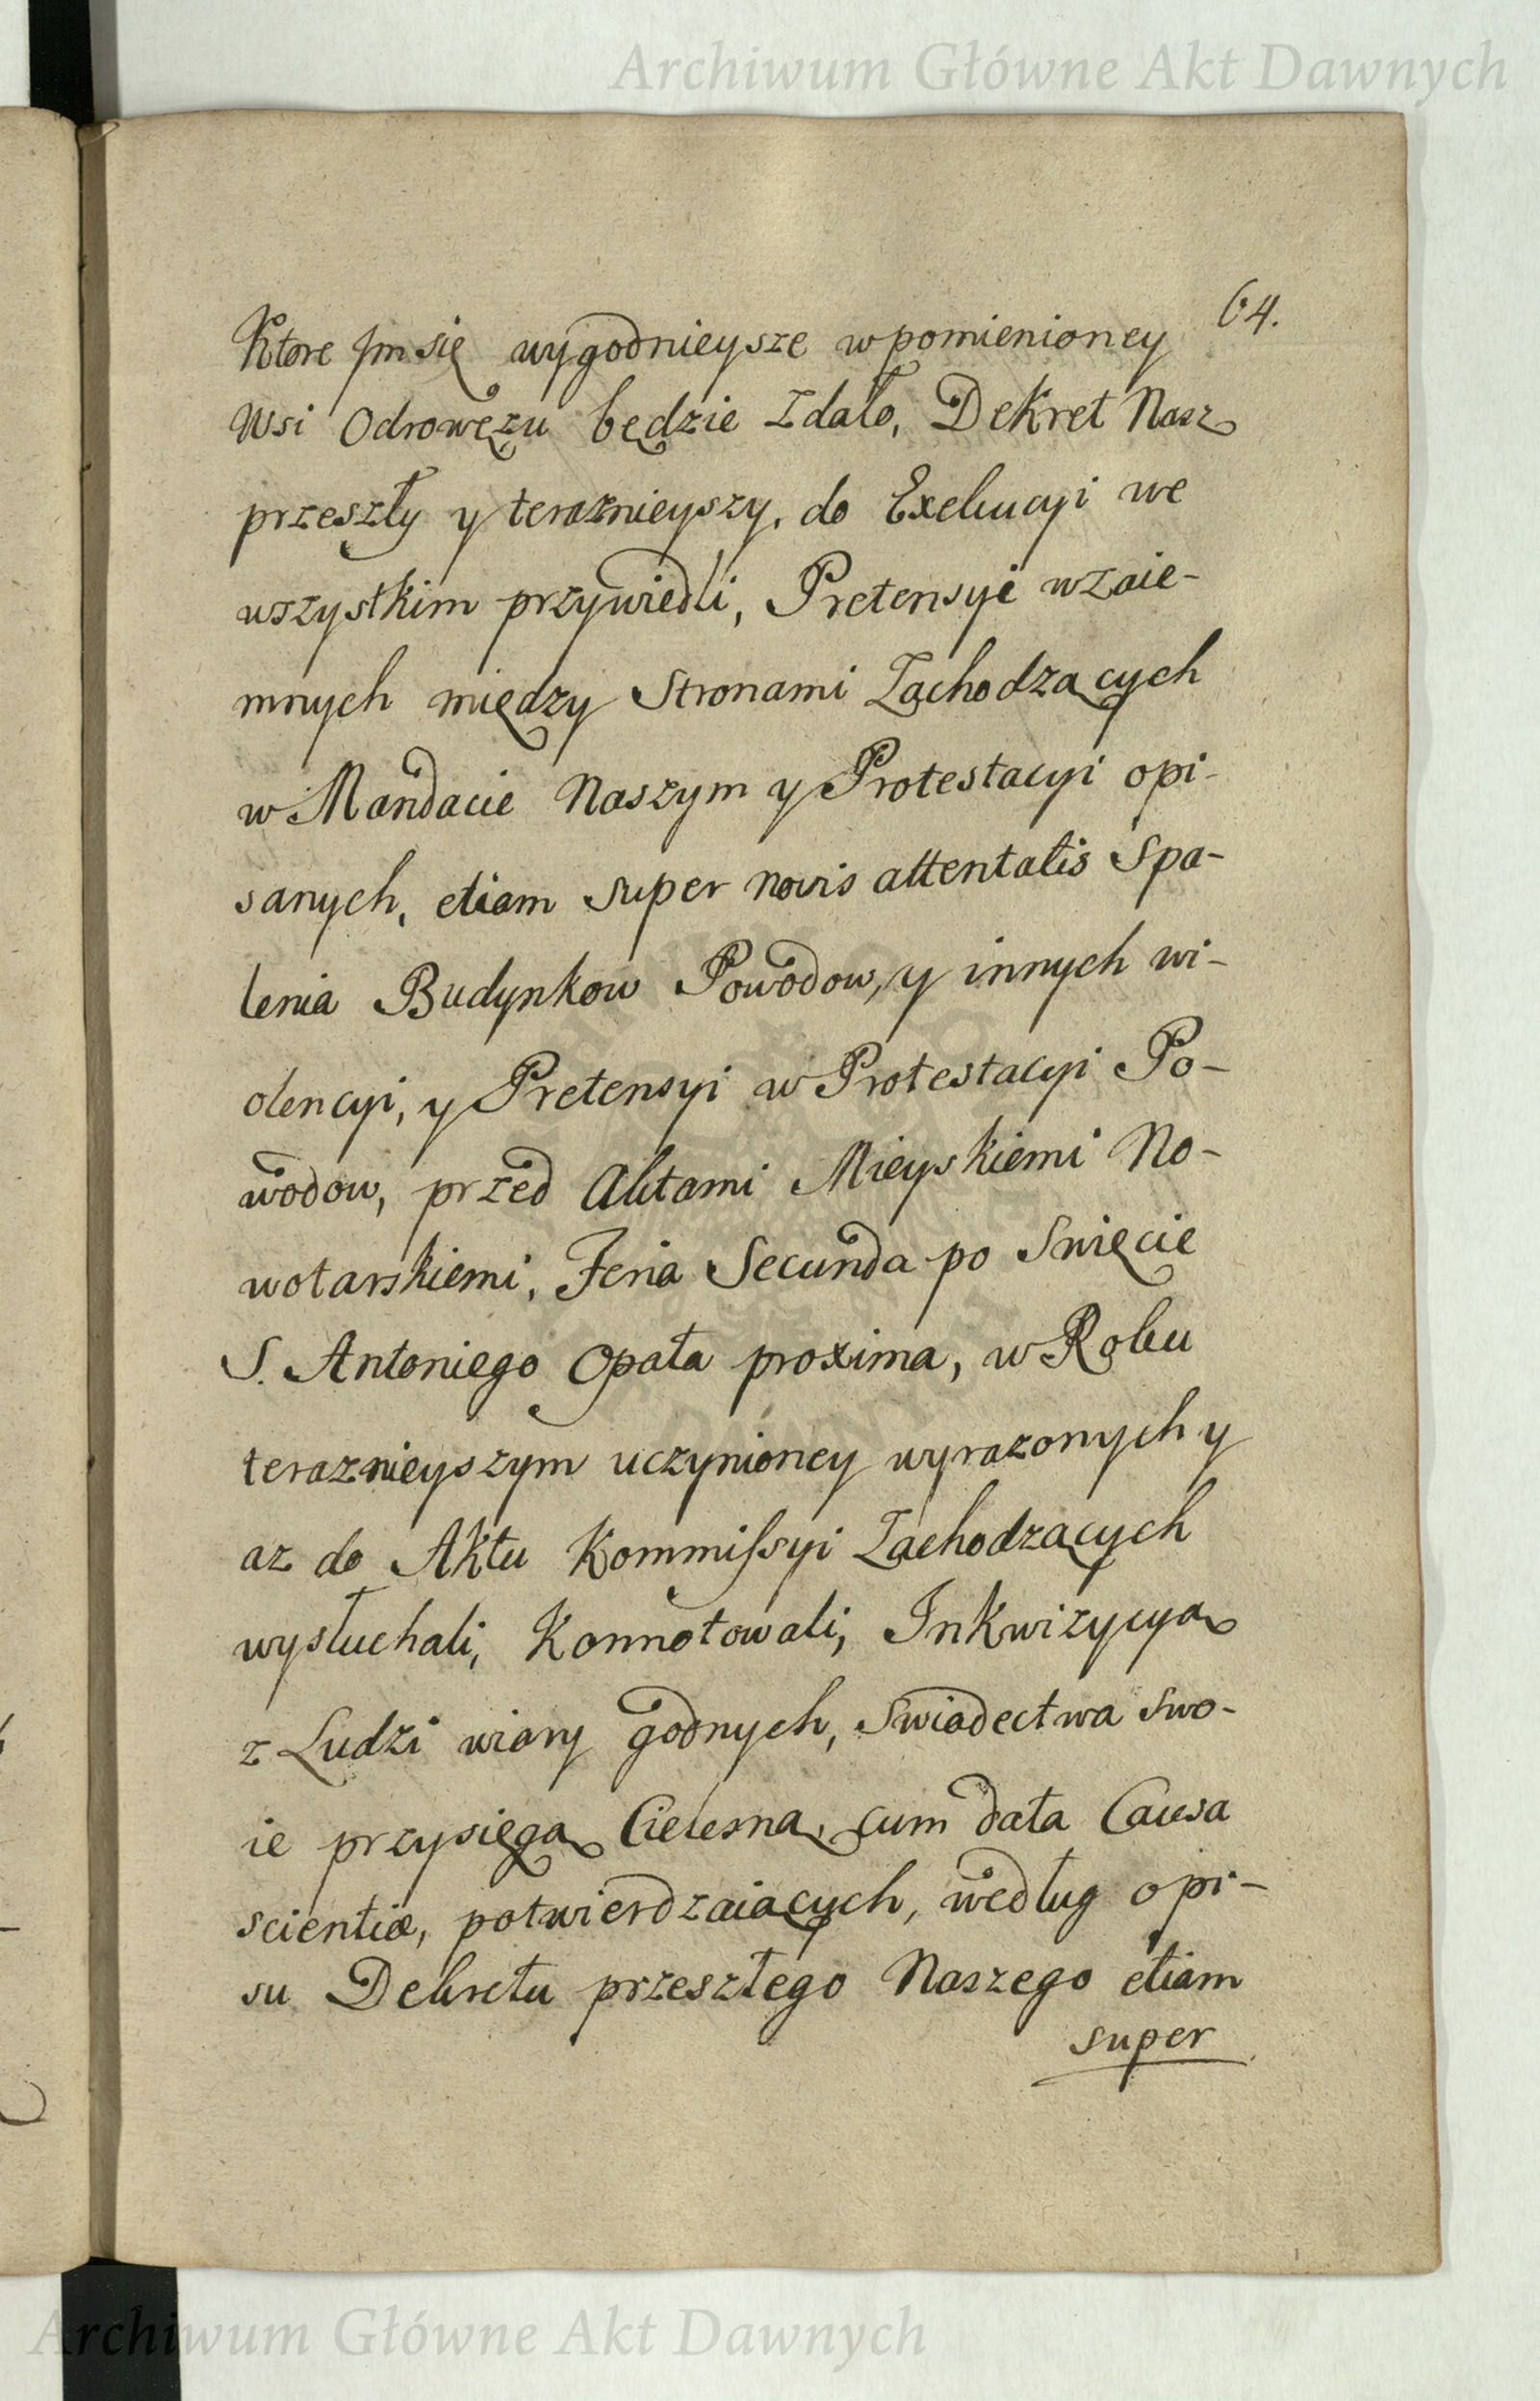 Archiwum Główne Akt Dawnych
64.
Ktore Jm się wygodnieysze w pomienioney
Wsi Odrowęzu będzie Zdało, Dekret Nasz
przeszły y teraznieyszy, do Exekucyi we
wszystkim przywiedli, Pretensyi wzaie-
mnych między Stronami Zachodzących
w Mandacie Naszym y Protestacyi opi-
sanych, etiam super novis attentatis Spa-
lenia Budynkow Powodow, y innych wi-
olencyi, y Pretensyi w Protestacyi Po-
wodow, przed Aktami Mieyskiemi No-
wotarskiemi, Feria Secunda po Swięcie
S. Antoniego Opata proxima, w Roku
teraznieyszym uczynioney wyrazonych y
az do Aktu Kommissyi Zachodzących
wysłuchali, Konnotowali, Inkwizycyą
z Ludzi wiary godnych, Swiadectwa swo-
ie przysięgą Cielesną, cum data Causa
scientiæ, potwierdzaiących, według opi-
su Dekretu przeszłego Naszego etiam
super
Archiwum Główne Akt Dawnych